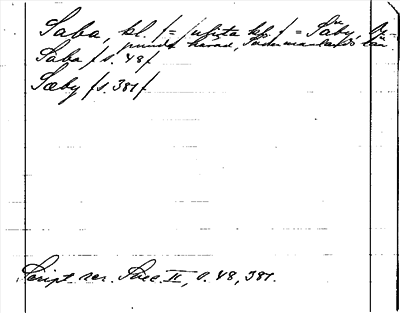 Saba, kl. /= Jufvita kb. / = Säby, 
punds härad, Södermanlands län
Saba / s. 48 /
Sæby / s. 381 /
Script. rer. Svec. II, s. 48, 381.